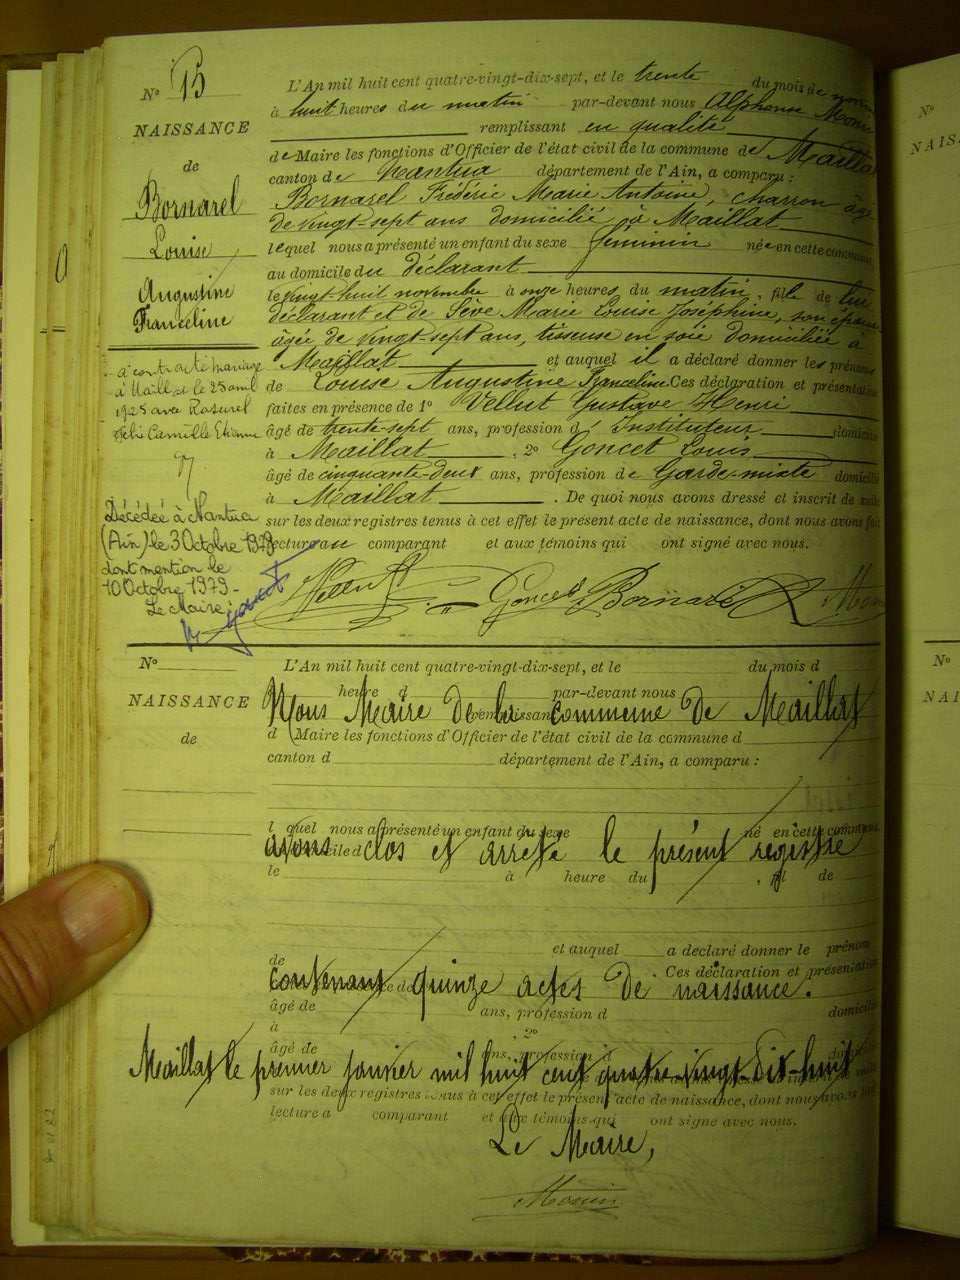 N° 15
NAISSANCE
de
Bornarel
Louise
Augustine
Franceline
a contracté mariage
à Maillat le 25 avril
1925 avec Rosurel
Felix Camille Etienne
Décédée à Nantua
(Ain) le 3 Octobre 1979
dont mention le
10 Octobre 1979 -
Le Maire :
L'An mil huit cent quatre-vingt-dix-sept, et le trente du mois de
à huit heures du matin par-devant nous Alphonse
remplissant en qualité
de Maire les fonctions d'Officier de l'état civil de la commune de Maillat
canton de Nantua département de l'Ain, a comparu :
Bornarel Frédéric Marie Antoine, charron âgé
de vingt-sept ans domicilié à Maillat
lequel nous a présenté un enfant du sexe féminin née en cette commune,
au domicile du déclarant
le vingt-huit novembre à onze heures du matin, fille de lui
déclarant et de Sève Marie Louise Joséphine, son épouse
âgée de vingt-sept ans, tisseuse en soie domiciliée à
Maillat et auquel il a déclaré donner les prénoms
de Louise Augustine Franceline. Ces déclaration et présentation
faites en présence de 1° Vellut Gustave Henri
âgé de trente-sept ans, profession d'Instituteur domicilié
à Maillat, 2° Goncet Louis
âgé de cinquante-deux ans, profession de Garde-mixte domicilié
à Maillat. De quoi nous avons dressé et inscrit de suite
sur les deux registres tenus à cet effet le présent acte de naissance, dont nous avons fait
lecture au comparant et aux témoins qui ont signé avec nous.
Vellut Goncet Bornarel
N°
NAISSANCE
de
L'An mil huit cent quatre-vingt-dix-sept, et le du mois d
heure d par-devant nous
Nous Maire de la commune de Maillat
remplissant
d Maire les fonctions d'Officier de l'état civil de la commune d
canton d département de l'Ain, a comparu :
l quel nous a présenté un enfant du sexe né en cette commune,
avons clos et arrêté le présent registre
le à heure du , fil de
et auquel a déclaré donner le prénom
de Ces déclaration et présentation
contenant quinze actes de naissance.
âgé de ans, profession d domicilié
à , 2°
âgé de ans, profession d
Maillat le premier janvier mil huit cent quatre-vingt-dix-huit
sur les deux registres tenus à cet effet le présent acte de naissance, dont nous avons fait
lecture a comparant et aux témoins qui ont signé avec nous.
Le Maire,
N°
N°